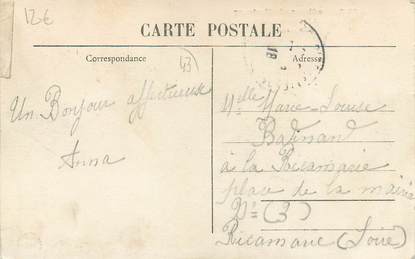 12€
CARTE POSTALE
Correspondance
43
Adresse
18
Un Bonjour affectueux
Anna
Mlle Marie-Louise
à la Ricamarie
place de la mairie
(3)
Ricamarie (Loire)